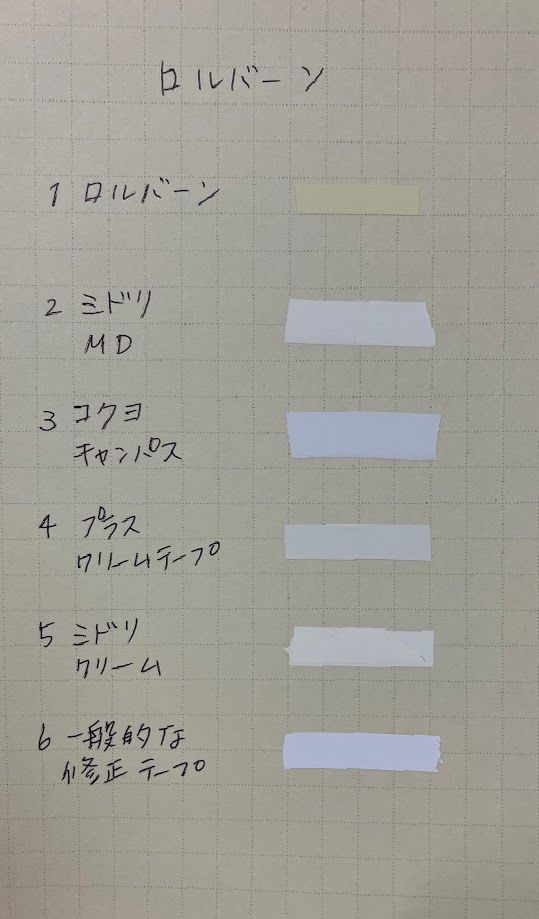 ロルバーン
1 ロルバーン
2 ミドリ
MD
3 コクヨ
キャンパス
4 プラス
クリームテープ
5 ミドリ
クリーム
6 一般的な
修正テープ